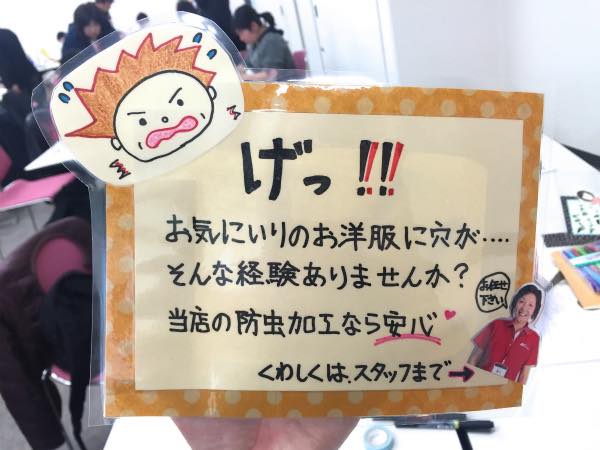 げっ!!!
お気にいりのお洋服に穴が‥‥
そんな経験ありませんか?
当店の防虫加工なら安心
お任せ
下さい!
くわしくは、スタッフまで→